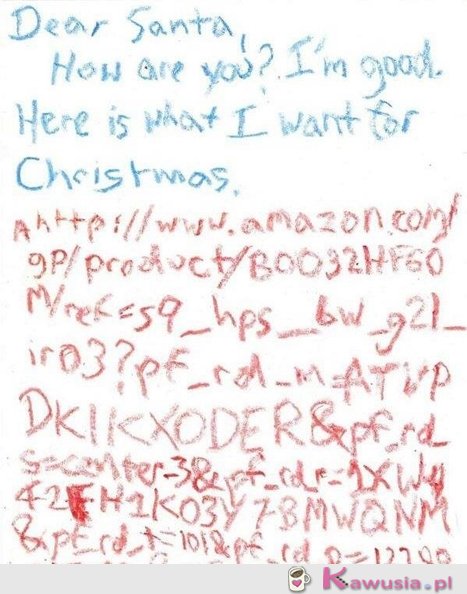 Dear Santa,
How are you? I'm good.
Here is what I want for
Christmas.
A http://www.amazon.com/
gp/product/B0032HF60
M/ref=s9_hps_bw_g21_
ir03?pf_rd_m=ATVP
DKIKX0DER&pf_rd_
s=center-3&pf_rd_r=1XWY
42FH1K03Y7BMWQNM
&pf_rd_t=101&pf_rd_
Kawusia.pl